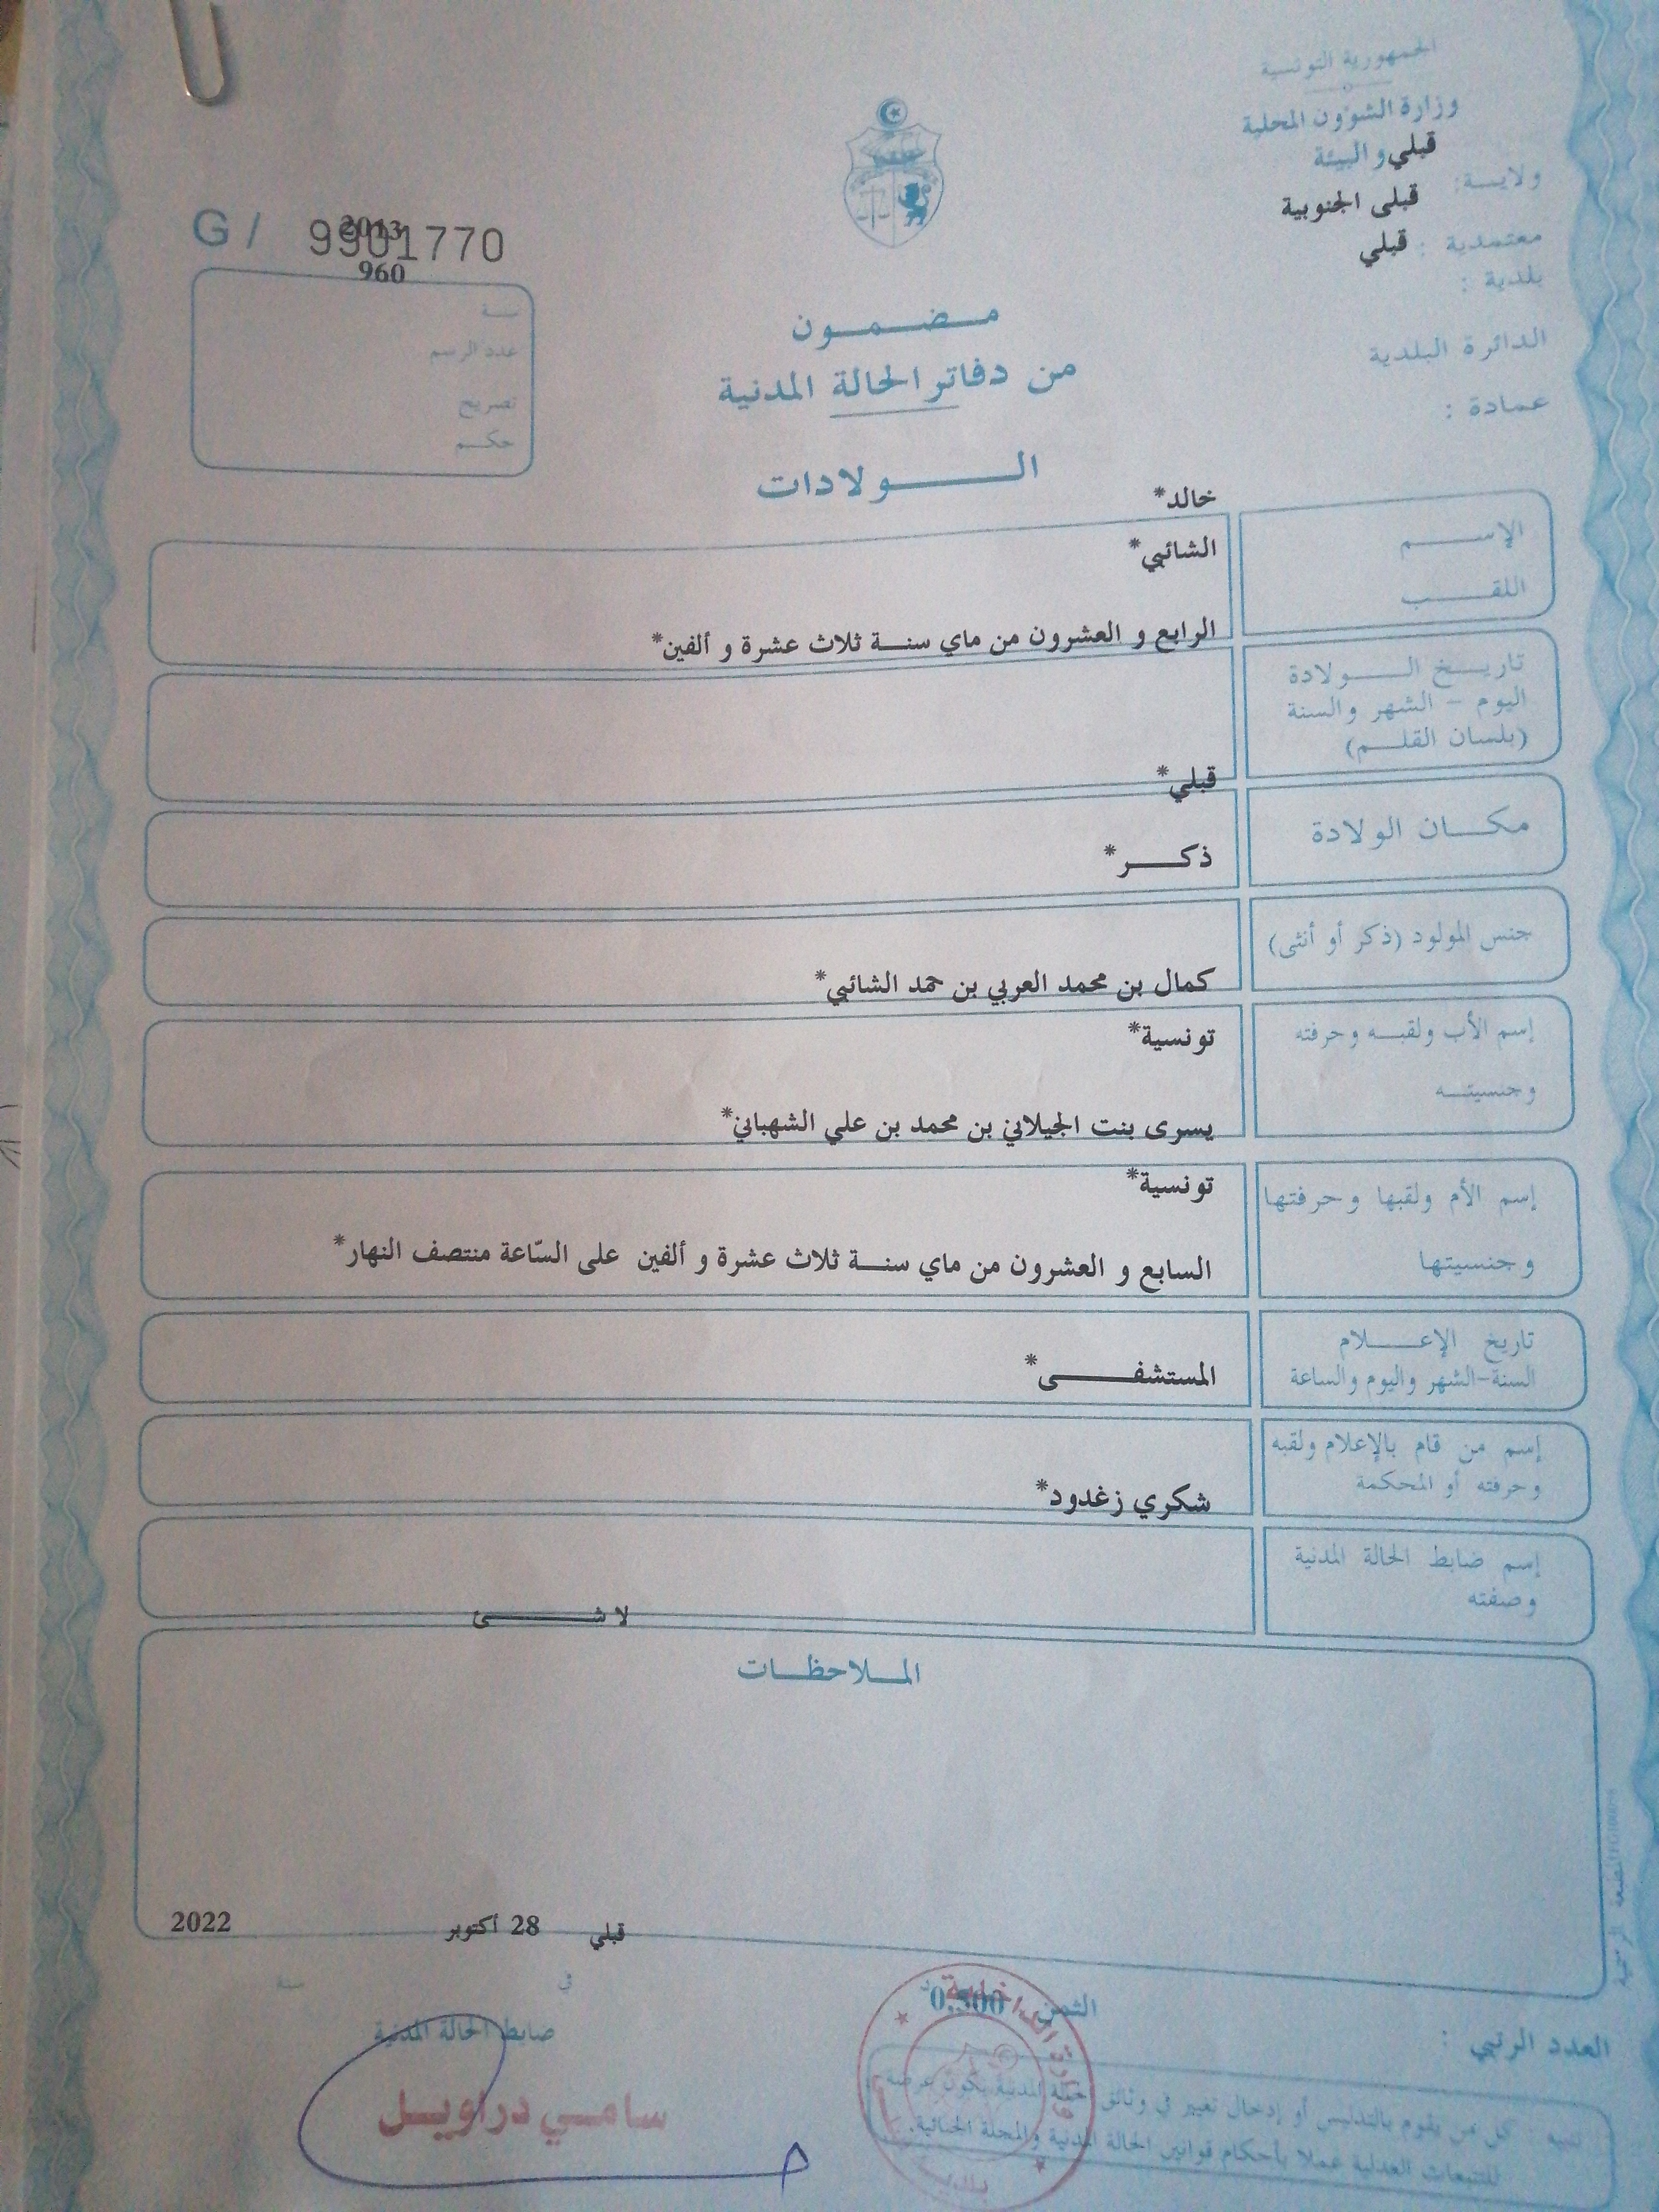 الجمهورية التونسية
وزارة الشؤون المحلية
والبيئة قبلي
ولايـــة:
قبلى الجنوبية
معتمدية : قبلي
بلدية :
الدائرة البلدية
عمادة :
G / 9901770
2013
960
سنـــة
عدد الرسم
تصريح
حكـــم
مـــضـــمـــون
من دفاتر الحالة المدنية
الـــــولادات
خالد*
الإســــــم
الشائبي*
اللقــــــب
الرابع و العشرون من ماي سنـــة ثلاث عشرة و ألفين*
تاريـــخ الــــولادة
اليوم - الشهر والسنة
(بلسان القلـــم)
قبلي*
مكـــان الولادة
ذكــــر*
جنس المولود (ذكر أو أنثى)
كمال بن محمد العربي بن حمد الشائبي*
إسم الأب ولقبـــه وحرفته
تونسية*
وجنسيتـــه
يسرى بنت الجيلاني بن محمد بن علي الشهباني*
تونسية*
إسم الأم ولقبها وحرفتها
وجنسيتها
السابع و العشرون من ماي سنـــة ثلاث عشرة و ألفين على السّاعة منتصف النهار*
تاريخ الإعــــلام
السنة-الشهر واليوم والساعة
المستشفــــــى*
إسم من قام بالإعلام ولقبه
وحرفته أو المحكمة
شكري زغدود*
إسم ضابط الحالة المدنية
وصفته
لا شــــــــئ
المـــلاحظـــات
قبلي 28 أكتوبر 2022
في سنة
الثمن 0,500 د
ضابط الحالة المدنية
العدد الرتبي :
سامـــي دراويـــل
تنبيه : كل من يقوم بالتدليس أو إدخال تغيير في وثائق الحالة المدنية يكون عرضة
للتتبعات العدلية عملا بأحكام قوانين الحالة المدنية والمجلة الجنائية.